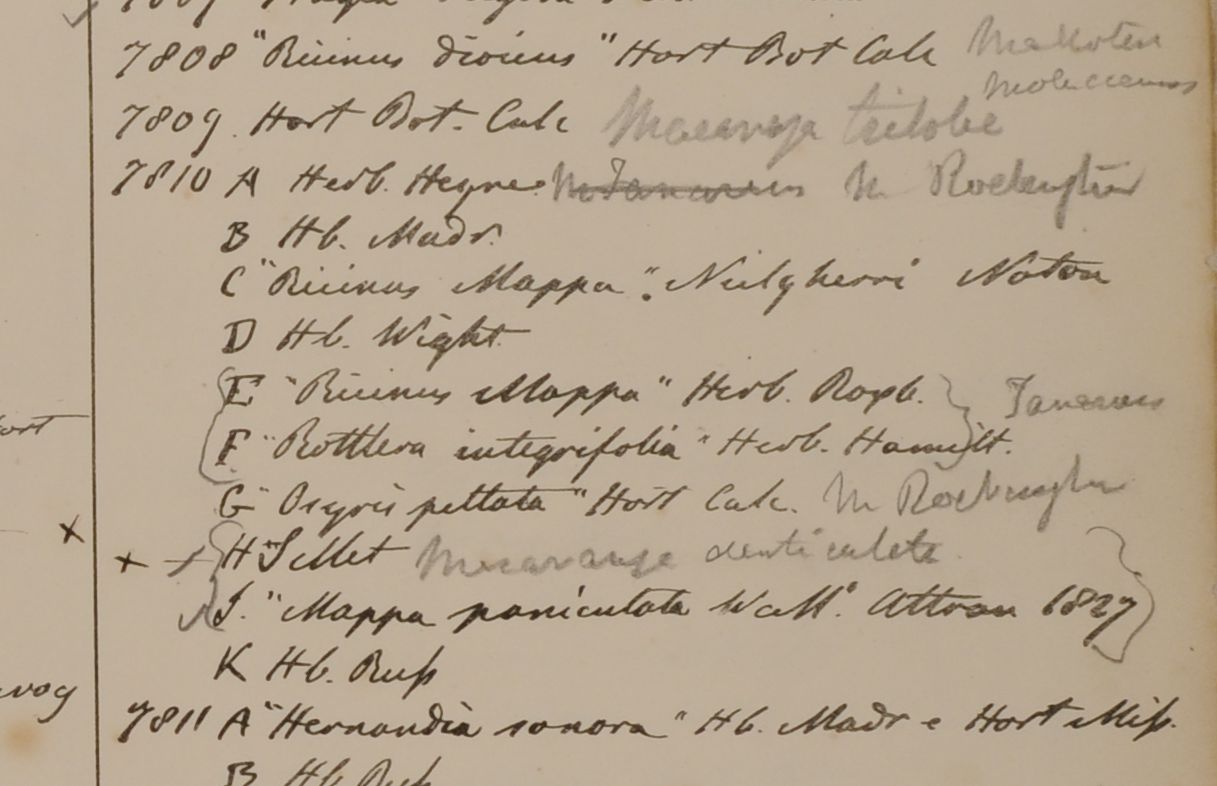 7808 "Ricinus dioicus" Hort Bot Calc Mallotus
moluccanus
7809. Hort Bot. Calc Macaranga triloba
7810 A Herb. Heyne. M Tanarius M Roxburghii
B Hb. Madr.
C "Ricinus Mappa". Neilgherri Noton
D Hb. Wight
E "Ricinus Mappa" Herb. Roxb. Tanarius
F "Rottlera integrifolia" Herb. Hamilt.
G "Osyris peltata" Hort Calc. M Roxburghii
ort
x
x H Sillet Macaranga denticulata
J. "Mappa paniculata Wall". Attran 1827
K Hb. Russ
7811 A "Hernandia sonora" Hb. Madr e Hort Miss.
B Hb Russ